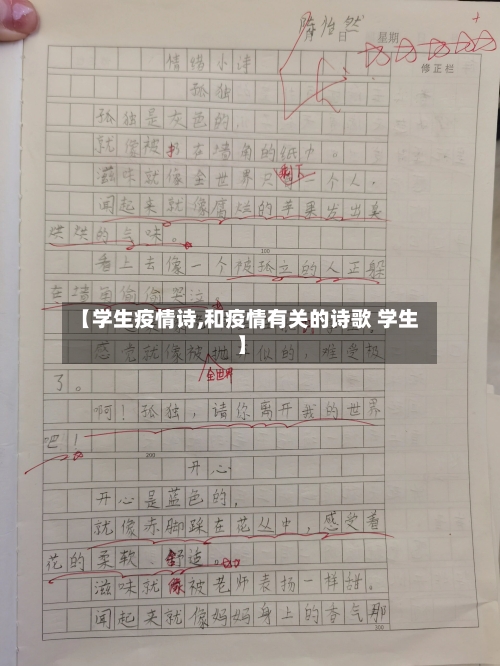 陈怡然
日 星期
修正栏
情绪小诗
孤独
孤独是灰色的,
就像被扔在墙角的纸巾。
滋味就像全世界只剩下一个人,
闻起来就像腐烂的苹果发出臭
烘烘的气味。
100
看上去像一个被孤立的人正躲
在墙角偷偷哭泣
【学生疫情诗,和疫情有关的诗歌 学生
】
感觉就像被抛 似的,难受极
全世界
了。
啊!孤独,请你离开我的世界
吧!
200
开心
开心是蓝色的,
就像赤脚踩在花丛中,感受着
花的柔软、舒适。
滋味就像被老师表扬一样甜。
闻起来就像妈妈身上的香气那
300